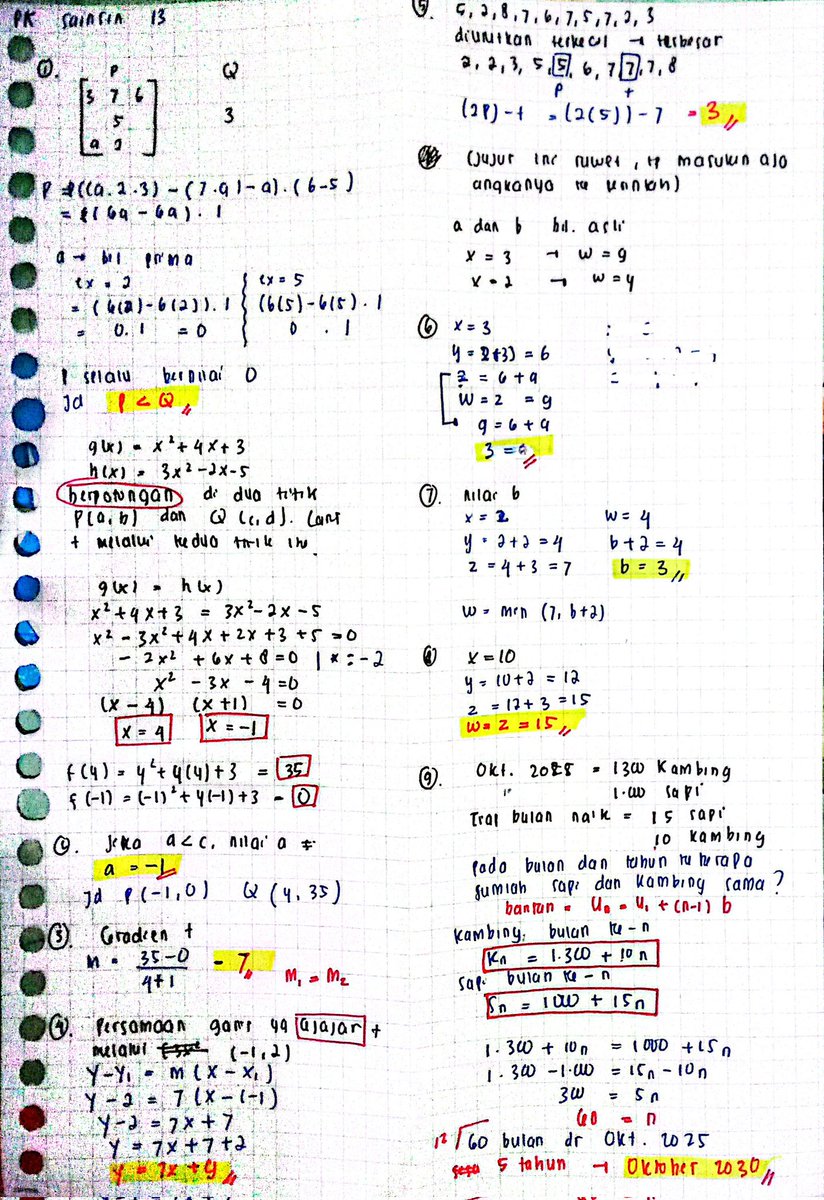 PK Saintek 13
①. P Q
3 7 6
5 3
a 2
P = ((a.2.3) - (7.9) - a) . (6-5)
= ((6a - 6a) . 1
a → bil prima
ex = 2 ex = 5
= (6(2) - 6(2)) . 1 (6(5) - 6(5) . 1
= 0.1 = 0 0 . 1
P selalu bernilai 0
Jd P < Q
g(x) = x² + 4x + 3
h(x) = 3x² - 2x - 5
berpotongan di dua titik
P(a,b) dan Q (c,d). Garis
t melalui kedua titik ini.
g(x) = h(x)
x² + 4x + 3 = 3x² - 2x - 5
x² - 3x² + 4x + 2x + 3 + 5 = 0
- 2x² + 6x + 8 = 0 | x : -2
x² - 3x - 4 = 0
(x - 4) (x + 1) = 0
x = 4 x = -1
f(4) = 4² + 4(4) + 3 = 35
f(-1) = (-1)² + 4(-1) + 3 = 0
②. Jika a < c, nilai a =
a = -1
Jd P(-1,0) Q (4,35)
③. Gradien t
m = 35-0 = 7
4+1
M₁ = M₂
④. Persamaan garis yg sejajar t
melalui (-1,2)
y - y₁ = m (x - x₁)
y - 2 = 7 (x - (-1)
y - 2 = 7x + 7
y = 7x + 7 + 2
y = 7x + 9
⑤. 5, 2, 8, 7, 6, 7, 5, 7, 2, 3
diurutkan terkecil → terbesar
2, 2, 3, 5, 5, 6, 7, 7, 7, 8
P t
(2P) - t = (2(5)) - 7 = 3
(Jujur ini ruwet, tp masukin aja
angkanya ke
a dan b bil. asli
x = 3 → w = 9
x = 2 → w = 4
⑥ x = 3
y = 2(3) = 6
z = 6 + a
w = z = 9
9 = 6 + a
3 = a
⑦. nilai b
x = 2 w = 4
y = 2+2 = 4 b + 2 = 4
z = 4+3 = 7 b = 3
w = min (7, b+2)
⑧ x = 10
y = 10 + 2 = 12
z = 12 + 3 = 15
w = z = 15
⑨. Okt. 2025 = 1300 Kambing
" 1.000 sapi
Tiap bulan naik = 15 sapi
10 kambing
pada bulan dan tahun ke berapa
jumlah sapi dan kambing sama?
Un = U₁ + (n-1) b
kambing: bulan ke-n
Kn = 1.300 + 10n
sapi bulan ke-n
Sn = 1000 + 15n
1.300 + 10n = 1000 + 15n
1.300 - 1.000 = 15n - 10n
300 = 5n
60 = n
12 √60 bulan dr Okt. 2025
5 tahun → Oktober 2030